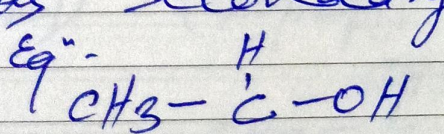 Eqⁿ-
H
CH3-C-OH